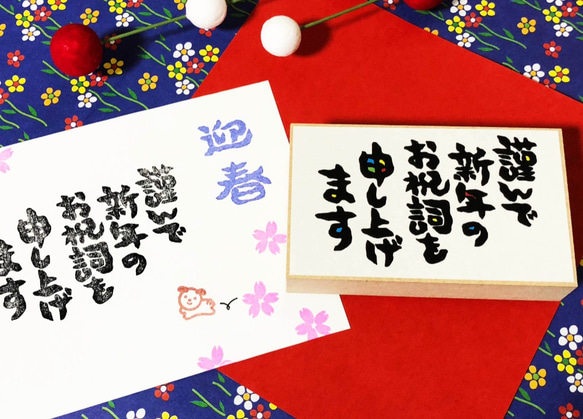 迎春
謹んで
新年の
お祝詞を
申し上げ
ます
謹んで
新年の
お祝詞を
申し上げ
ます